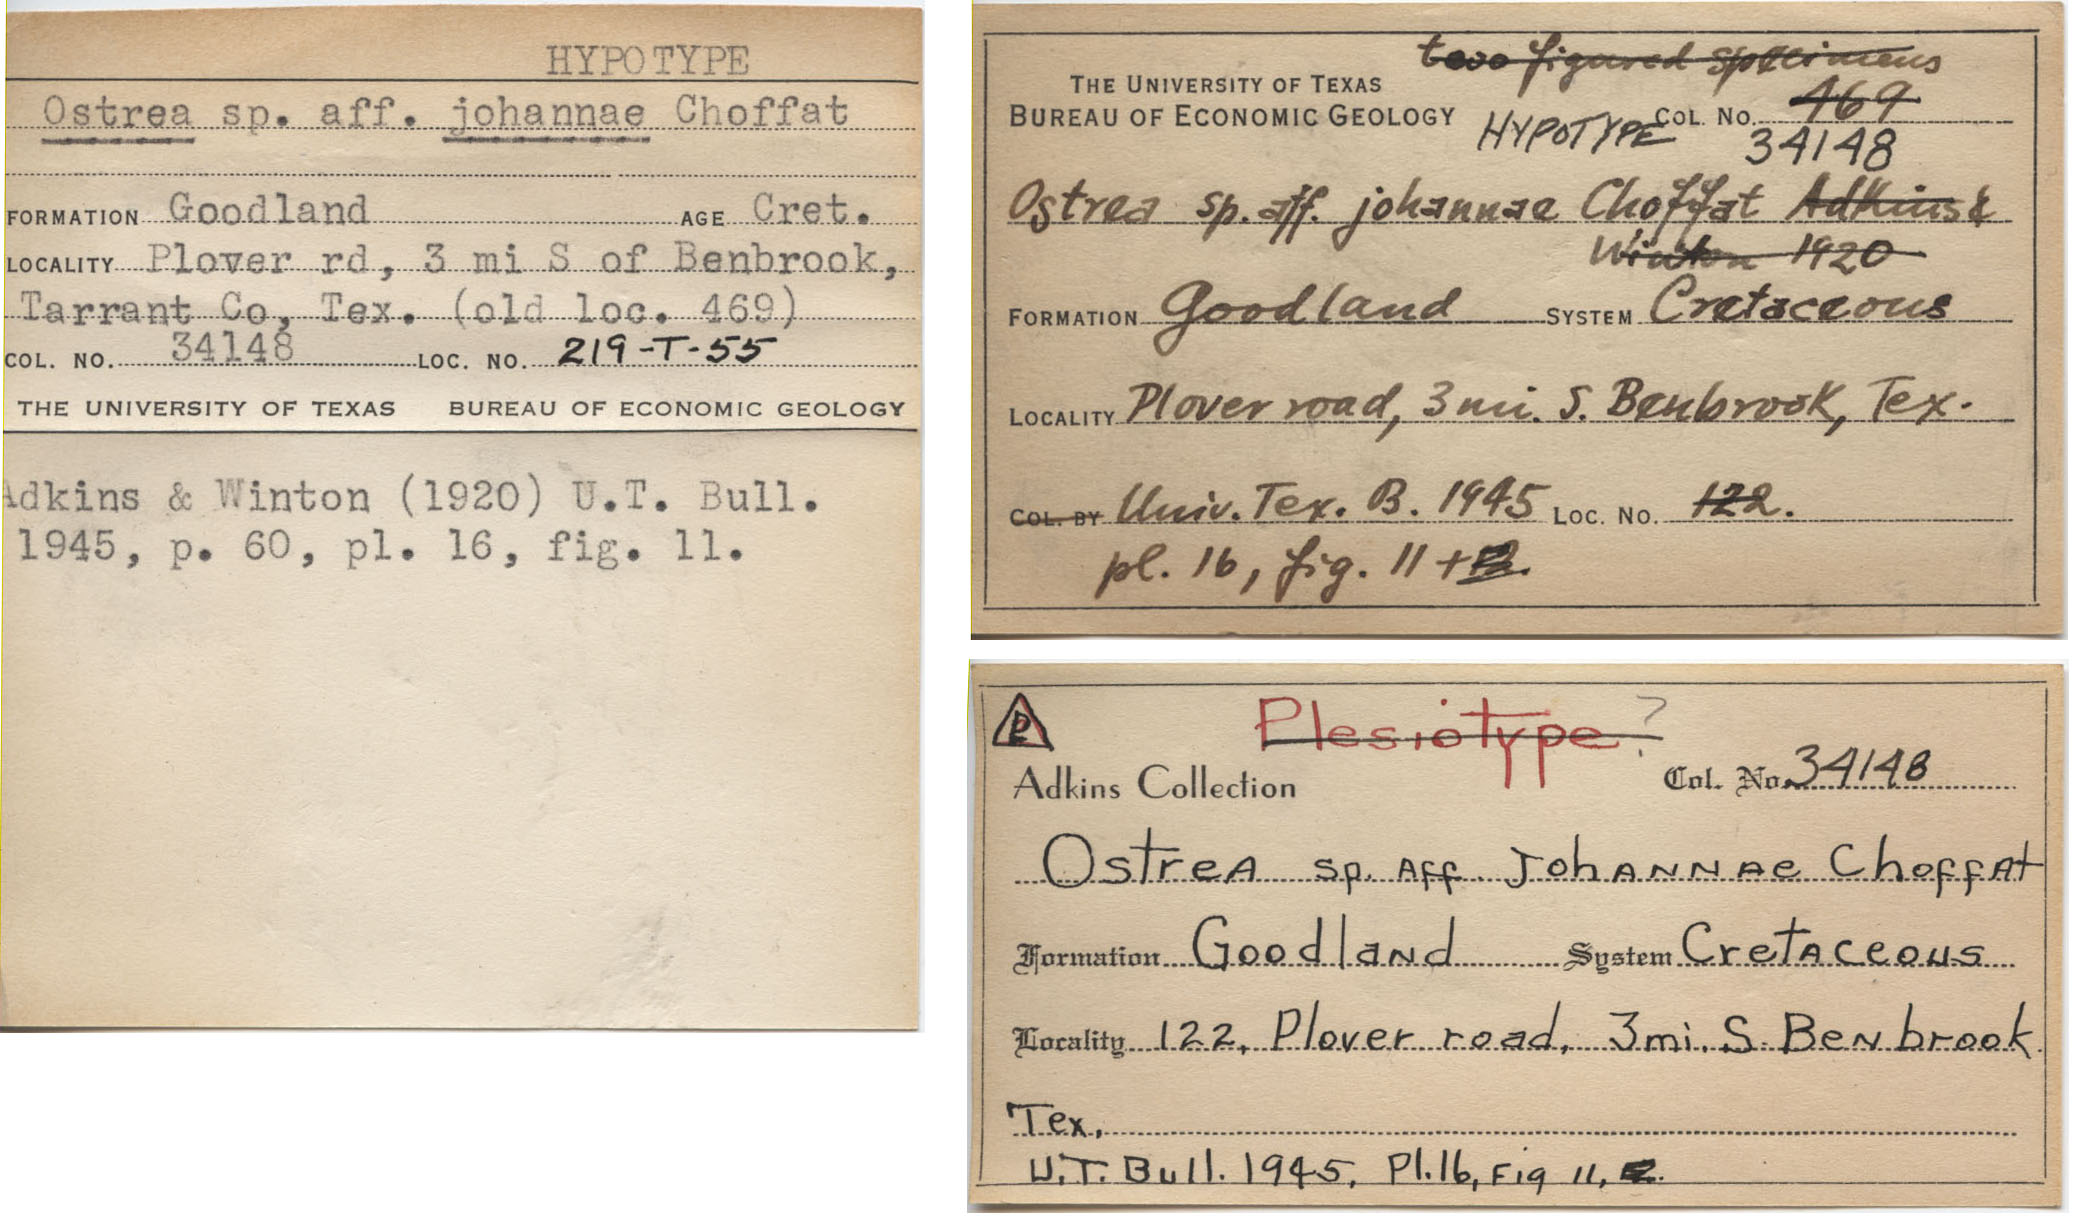 HYPOTYPE
Ostrea sp. aff. johannae Choffat
FORMATION Goodland AGE Cret.
LOCALITY Plover rd, 3 mi S of Benbrook,
Tarrant Co, Tex. (old loc. 469)
COL. NO. 34148 LOC. NO. 219-T-55
THE UNIVERSITY OF TEXAS BUREAU OF ECONOMIC GEOLOGY
Adkins & Winton (1920) U.T. Bull.
1945, p. 60, pl. 16, fig. 11.
two figured specimens
THE UNIVERSITY OF TEXAS
BUREAU OF ECONOMIC GEOLOGY HYPOTYPE COL. NO. 469
34148
Ostrea sp. aff. johannae Choffat Adkins &
Winton 1920
FORMATION Goodland SYSTEM Cretaceous
LOCALITY Plover road, 3 mi. S. Benbrook, Tex.
COL. BY Univ. Tex. B. 1945 LOC. NO. 122.
pl. 16, fig. 11 +
P Plesiotype ?
Adkins Collection Col. No. 34148
Ostrea sp. Aff. Johannae Choffat
Formation Goodland System Cretaceous
Locality 122, Plover road, 3mi. S. Benbrook
Tex.
U.T. Bull. 1945, Pl. 16, Fig 11,